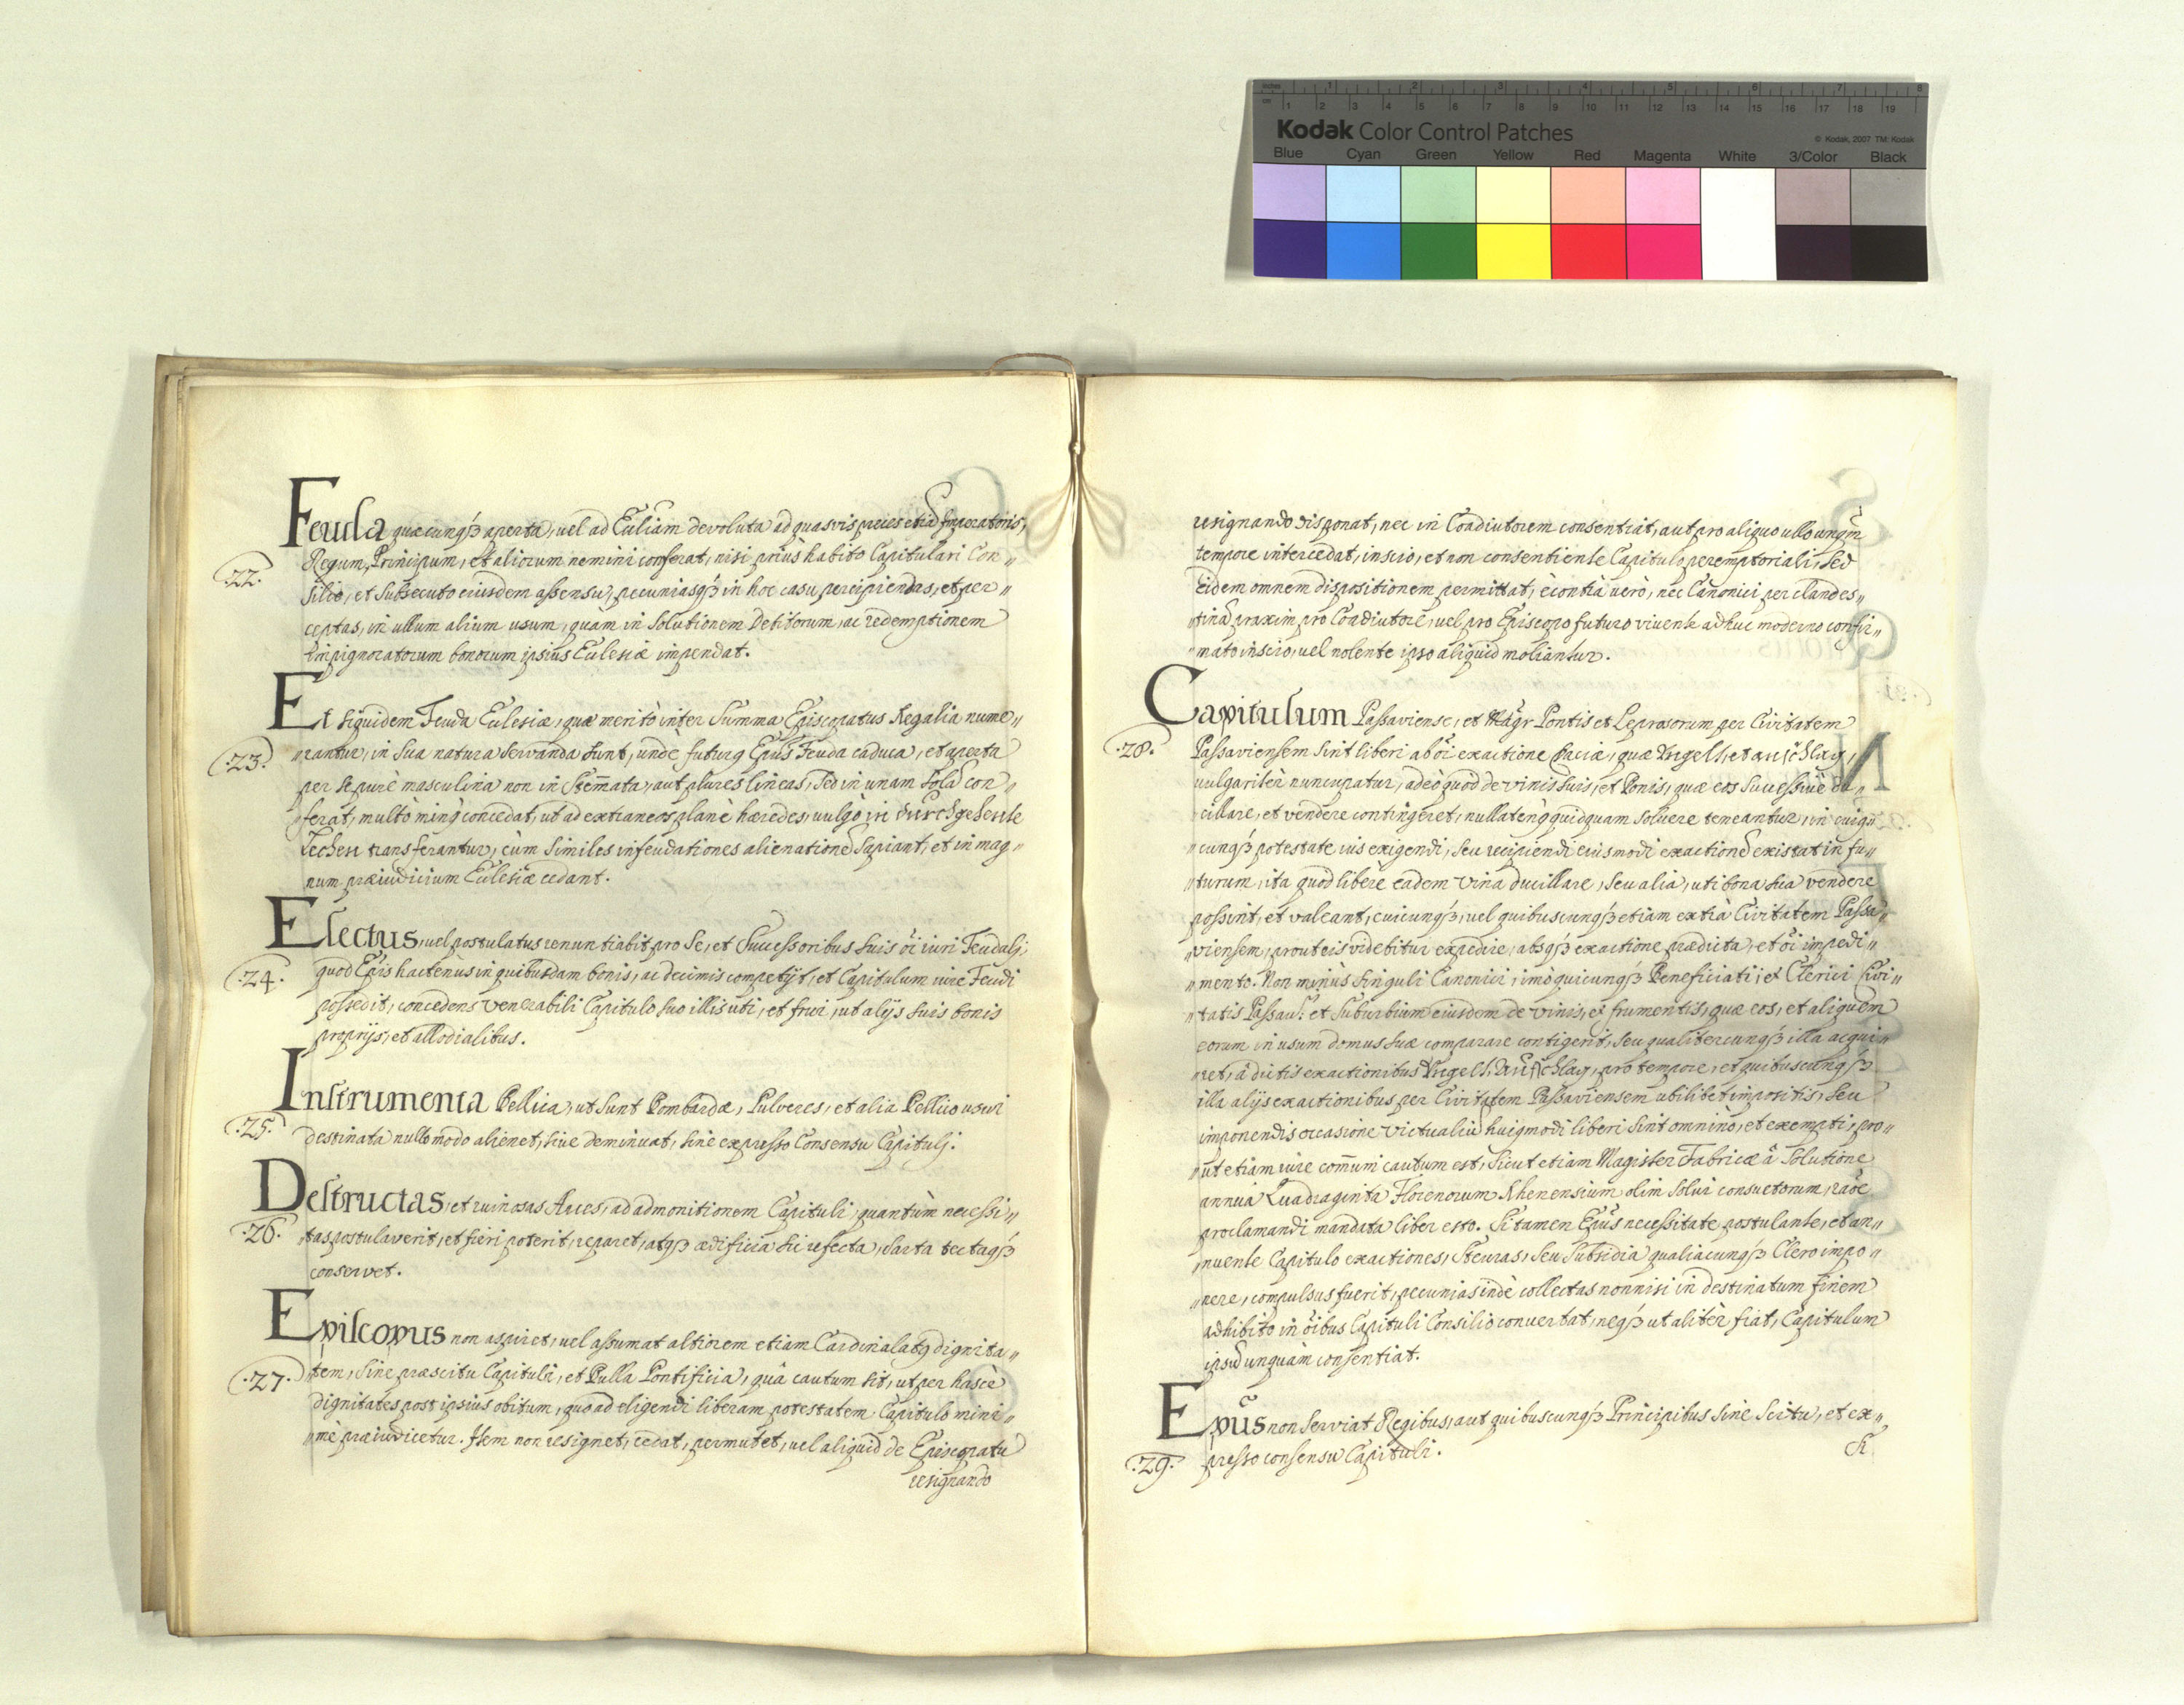 inches 1 2 3 4 5 6 7 8
cm 1 2 3 4 5 6 7 8 9 10 11 12 13 14 15 16 17 18 19
Kodak Color Control Patches
© Kodak, 2007 TM: Kodak
Blue Cyan Green Yellow Red Magenta White 3/Color Black
Feuda quæcunqꝫ aperta, vel ad Ecclīam devoluta ad quasvis preces etiā Imperatoris,
Regum, Principum, et aliorum nemini conferat, nisi priùs habito Capitulari Con„
.22.
silio, et subsecuto eiusdem assensu, pecuniasqꝫ in hoc casu percipiendas, et per„
ceptas, in ullum alium usum, quàm in Solutionem Debitorum, ac redemptionem
impignoratorum bonorum ipsius Ecclesiæ impendat.
Et siquidem Feuda Ecclesiæ, quæ meritò inter Summa Episcopatus Regalia nume„
.23.
„rantur, in sua natura servanda sunt, undè futurꝰ Epūs Feuda caduca, et aperta
per se purè masculina non in Stem̄ata, aut plures lineas, sed in unam solā con„
„ferat, multò minꝰ concedat, ut ad extraneos planè hæredes, vulgò in durchgehente
Lechen transferantur, cùm similes infeudationes alienationē sapiant, et in mag„
num præiudicium Ecclesiæ cedant.
Electus, vel postulatus renuntiabit pro Se, et Successoribus suis oī iuri Feudalj,
.24.
quod Epīs hactenùs in quibusdam bonis, ac decimis competijt, et Capitulum iure Feudi
possedit, concedens Venerabili Capitulo suo illis uti, et frui, ut alijs suis bonis
proprijs, et allodialibus.
Instrumenta Bellica, ut sunt Bombardæ, Pulveres, et alia Bellico usui
.25.
destinata nullo modo alienet, sive deminuat, sine expresso Consensu Capitulj.
Destructas, et ruinosas Arces, ad admonitionem Capituli, quantùm necessi„
.26.
„tas postulaverit, et fieri poterit, reparet, atqꝫ ædificia sic refecta, sarta tectaqꝫ
conservet.
Episcopus non aspiret, vel assumat altiorem etiam Cardinalatꝰ dignita„
.27.
„tem, sine præscitu Capituli, et Bulla Pontificia, quâ cautum sit, ut per hasce
dignitates post ipsius obitum, quoad eligendi liberam potestatem Capitulo mini„
„mè præiudicetur. Item non resignet, cedat, permutet, vel aliquid de Episcopatu
resignando
resignando disponat, nec in Coadiutorem consentiat, aut pro aliquo ullo unqm̄
tempore intercedat, inscio, et non consentiente Capitulo peremptoriali, sed
Eidem omnem dispositionem permittat, ècontrà verò, nec Canonici per clandes„
„tinā praxim pro Coadiutore, vel pro Episcopo futuro vivente adhuc moderno confir„
„mato inscio, vel nolente ipso aliquid moliantur.
Capitulum Passaviense, et Magr̄ Pontis et Leprosorum per Civitatem
.28.
Passaviensem sint liberi ab oī exactione quæ Ungelt, et aufschlag,
vulgaritèr nuncupatur, adeò quod de vinis suis, et Bonis, quæ eos successivè du„
cillare, et vendere contingeret, nullatenꝰ quidquam solvere teneantur, in cuiꝰ„
„cunqꝫ potestate ius exigendi, seu recipiendi eiusmodi exactionē existat in fu„
„turum, ita quod liberè eadem Vina ducillare, seu alia, uti bona sua vendere
possint, et valeant, cuicunqꝫ, vel quibuscunqꝫ etiam extrà Civitatem Passa„
viensem, prout eis videbitur expedire, absqꝫ exactione prædicta, et oī impedi„
„mento. Non minùs singuli Canonici, imò quicunqꝫ Beneficiati, et Clerici Civi„
„tatis Passav: et Suburbium eiusdem de vinis, et frumentis, quæ eos, et aliquem
eorum in usum domus suæ comparare contigerit, seu qualitercunqꝫ illa acqui„
„ret, à dictis exactionibus Ungelt, Aufschlag, pro tempore, et quibuscunqꝫ
illa alijs exactionibus per Civitatem Passaviensem ubilibet impositis, seu
imponendis occasione victualiū huiꝰmodi liberi sint omninò, et exempti, pro„
„ut etiam iure com̄uni cautum est, sicut etiam Magister Fabricæ â Solutione
annua Quadraginta Florenorum Rhenensium olim solvi consuetorum, raōe
proclamandi mandata liber esto. Si tamen Epūs necessitate postulante, et an„
„nuente Capitulo exactiones, Steuras, seu Subsidia qualiacunqꝫ Clero impo„
„nere, compulsus fuerit, pecunias indè collectas nonnisi in destinatum finem
adhibito in oībus Capituli Consilio convertat, neqꝫ ut alitèr fiat, Capitulum
ipsū unquàm consentiat.
Epūs non serviat Regibus, aut quibuscunqꝫ Principibus sine Scitu, et ex„
.29.
presso consensu Capituli.